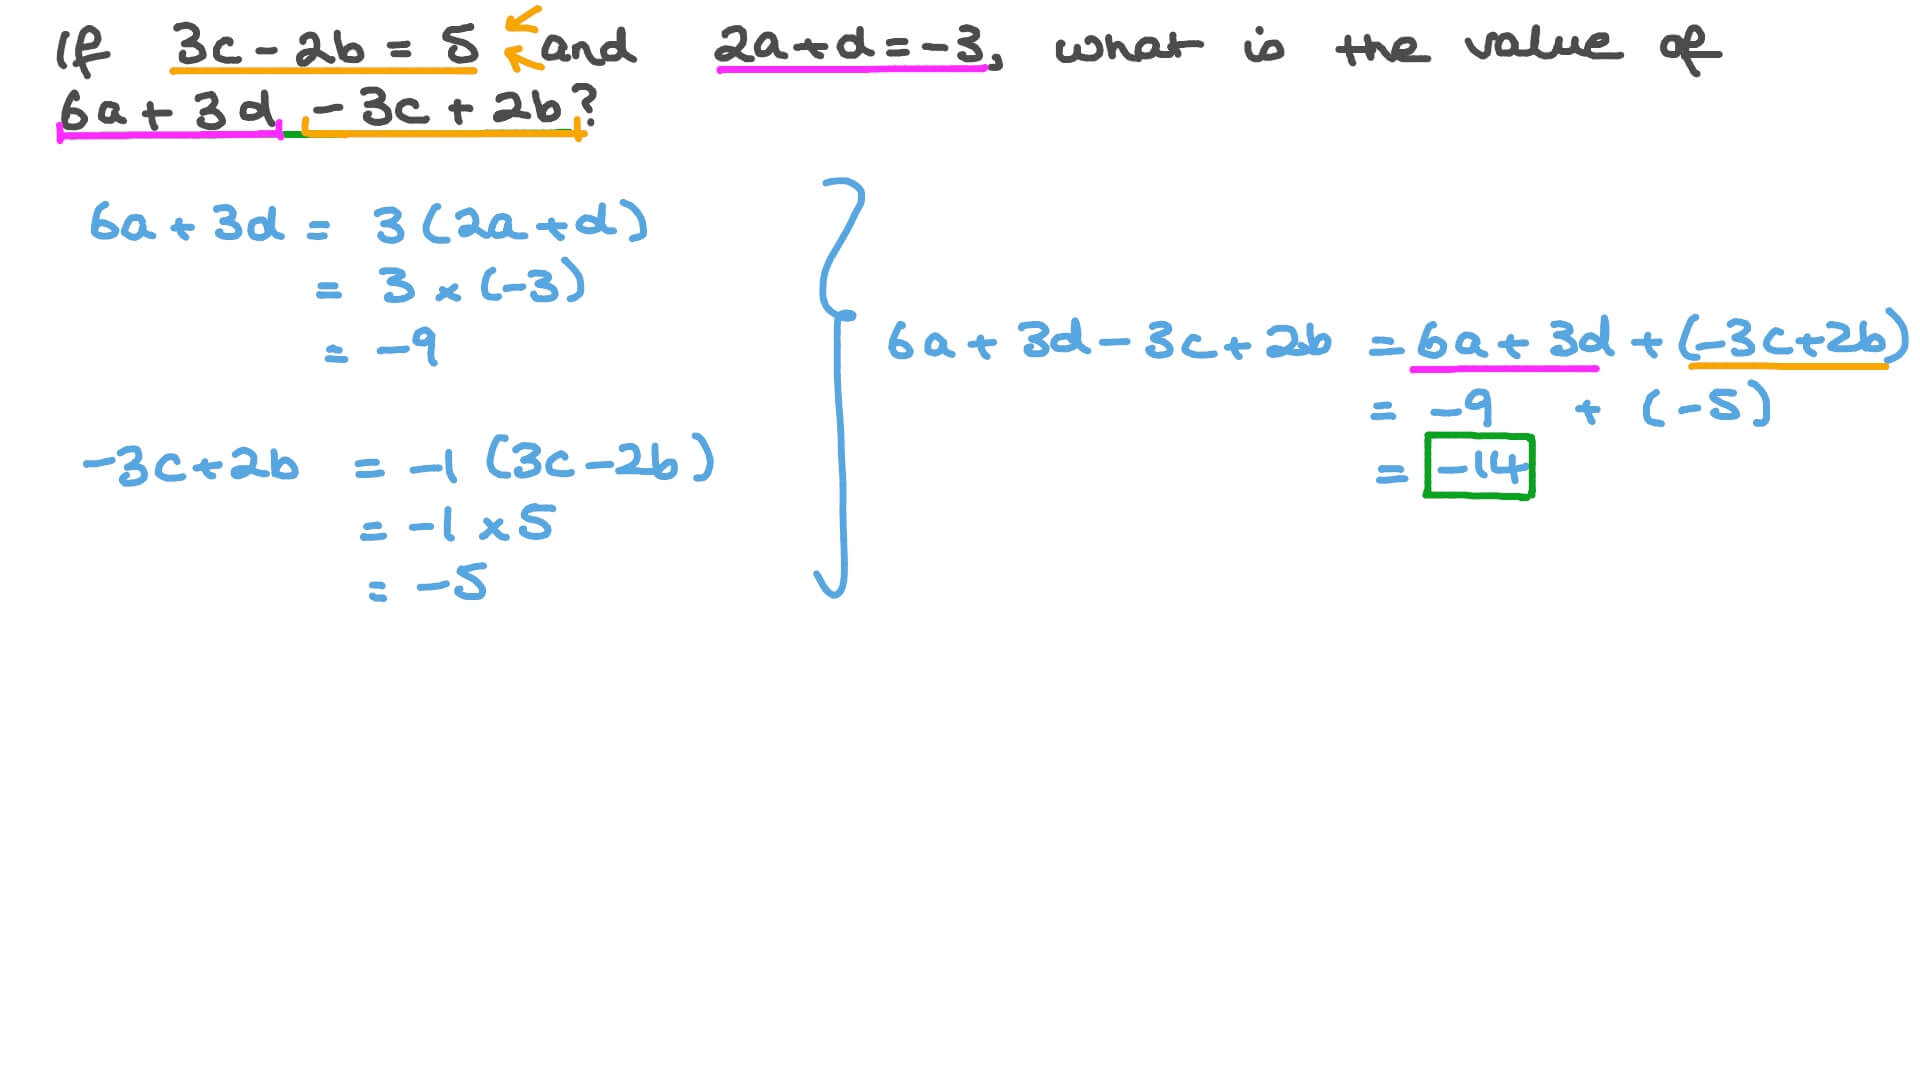 If 3c - 2b = 5 and 2a + d = -3, what is the value of
6a + 3d - 3c + 2b?
6a + 3d = 3 (2a + d)
= 3 × (-3)
= -9
-3c + 2b = -1 (3c - 2b)
= -1 × 5
= -5
6a + 3d - 3c + 2b = 6a + 3d + (-3c + 2b)
= -9 + (-5)
= -14